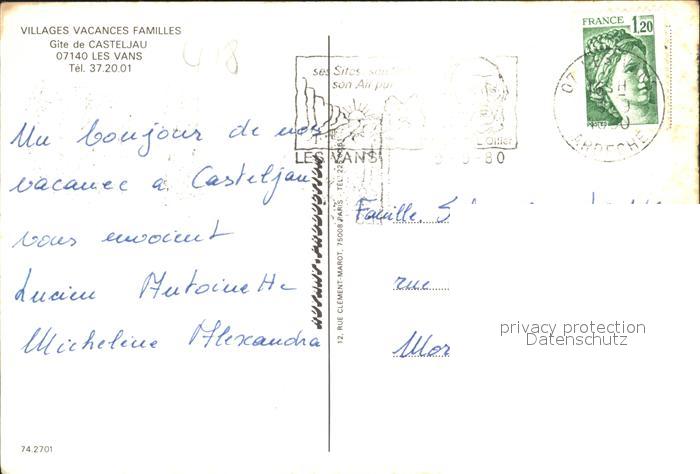 VILLAGES VACANCES FAMILLES
Gîte de CASTELJAU
07140 LES VANS
Tél. 37.20.01
418
Un bonjour de nos
vacance a Casteljau
vous envoient
Lucien Antoinette
Micheline Alexandra
74.2701
ses Sites, son
son Air pur
LES VANS
-80
12, RUE CLEMENT-MAROT, 75008 PARIS - TEL.
FRANCE 1,20
07
ARDECHE
Famille S
rue
Mor
privacy protection
Datenschutz